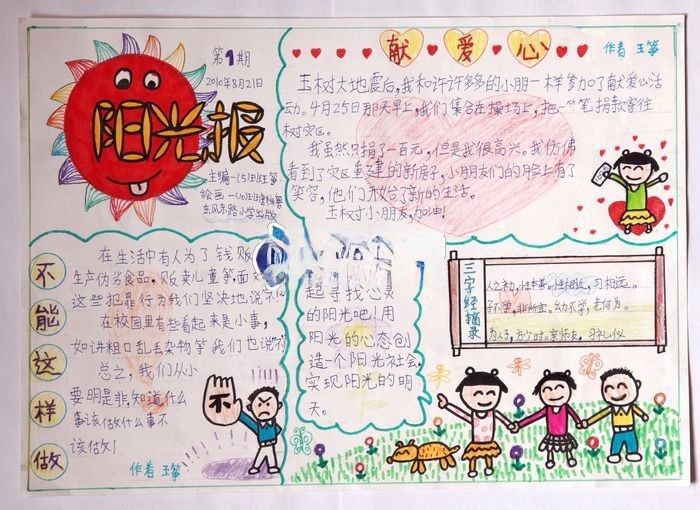 第1期
2010年8月21日
阳光报
东风东路小学出版
献爱心
作者 王筝
玉树大地震后,我和许许多多的小朋一样参加了献爱心活
动。4月25日那天早上,我们集合在操场上,把一笔笔捐款寄往
树灾区。
我虽然只捐了一百元,但是我很高兴。我仿佛
看到了灾区重建的新房子,小朋友们的脸上有了
笑容,他们开始了新的生活。
玉树小朋友,加油!
不能这样做
在生活中有人为了钱贩
生产伪劣食品,贩卖儿童等,面对
这些犯罪行为我们坚决地说不!
在校园里有些看起来是小事,
如讲粗口乱丢杂物等我们也说不
总之,我们从小
要明是非,知道什么
事该做什么事不
该做!
作者 王筝
不
起寻找心灵
的阳光吧!用
阳光的心态创
造一个阳光社会,
实现阳光的明
天。
三字经摘录
人之初,性本善。性相近,习相远。
子不学,非所宜。幼不学,老何为。
为人子,方少时。亲师友,习礼仪